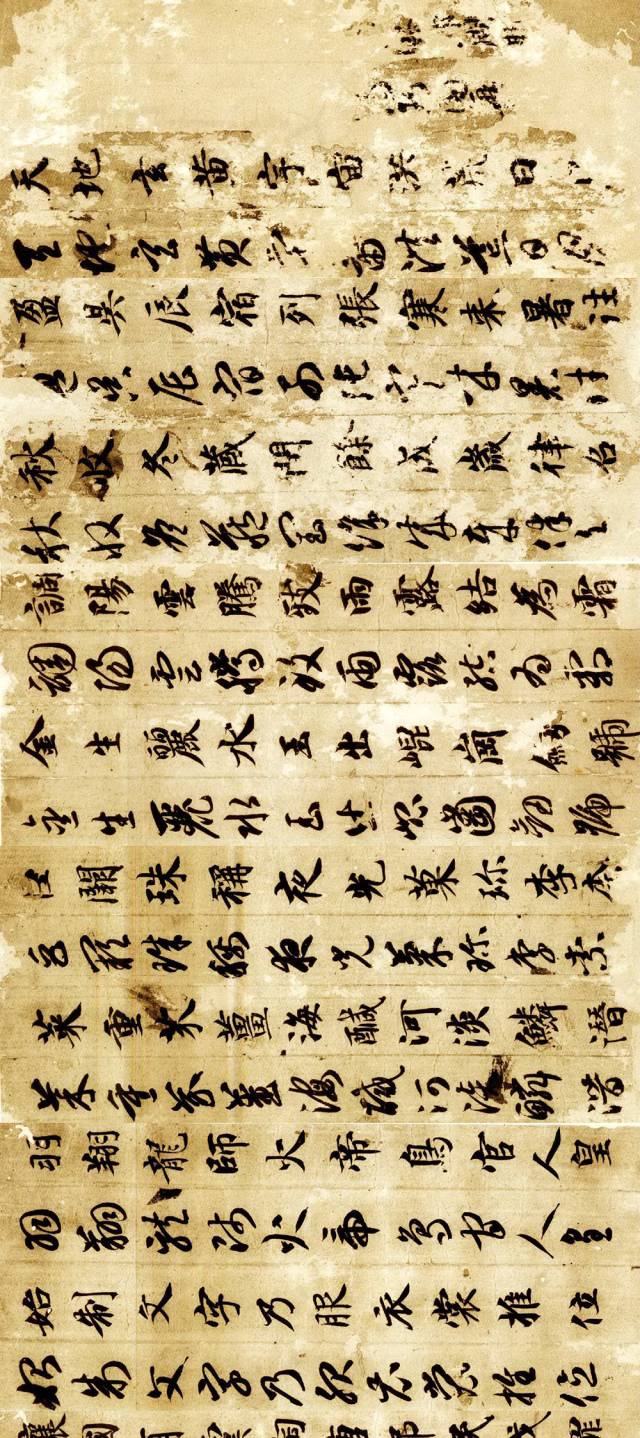 天地玄黃宇宙洪荒日
天地玄黃宇宙洪荒日月
盈昃辰宿列張寒来暑往
盈昃辰宿列張寒来暑往
秋收冬藏閏餘成歲律召
秋收冬藏閏餘成歲律召
調陽雲騰致雨露結為霜
調陽雲騰致雨露結為霜
金生麗水玉出崐崗劒號
金生麗水玉出崐崗劒號
巨闕珠稱夜光菓珎李柰
巨闕珠稱夜光菓珎李柰
菜重芥薑海醎河淡鱗潛
菜重芥薑海醎河淡鱗潛
羽翔龍師火帝鳥官人皇
羽翔龍師火帝鳥官人皇
始制文字乃服衣裳推位
始制文字乃服衣裳推位